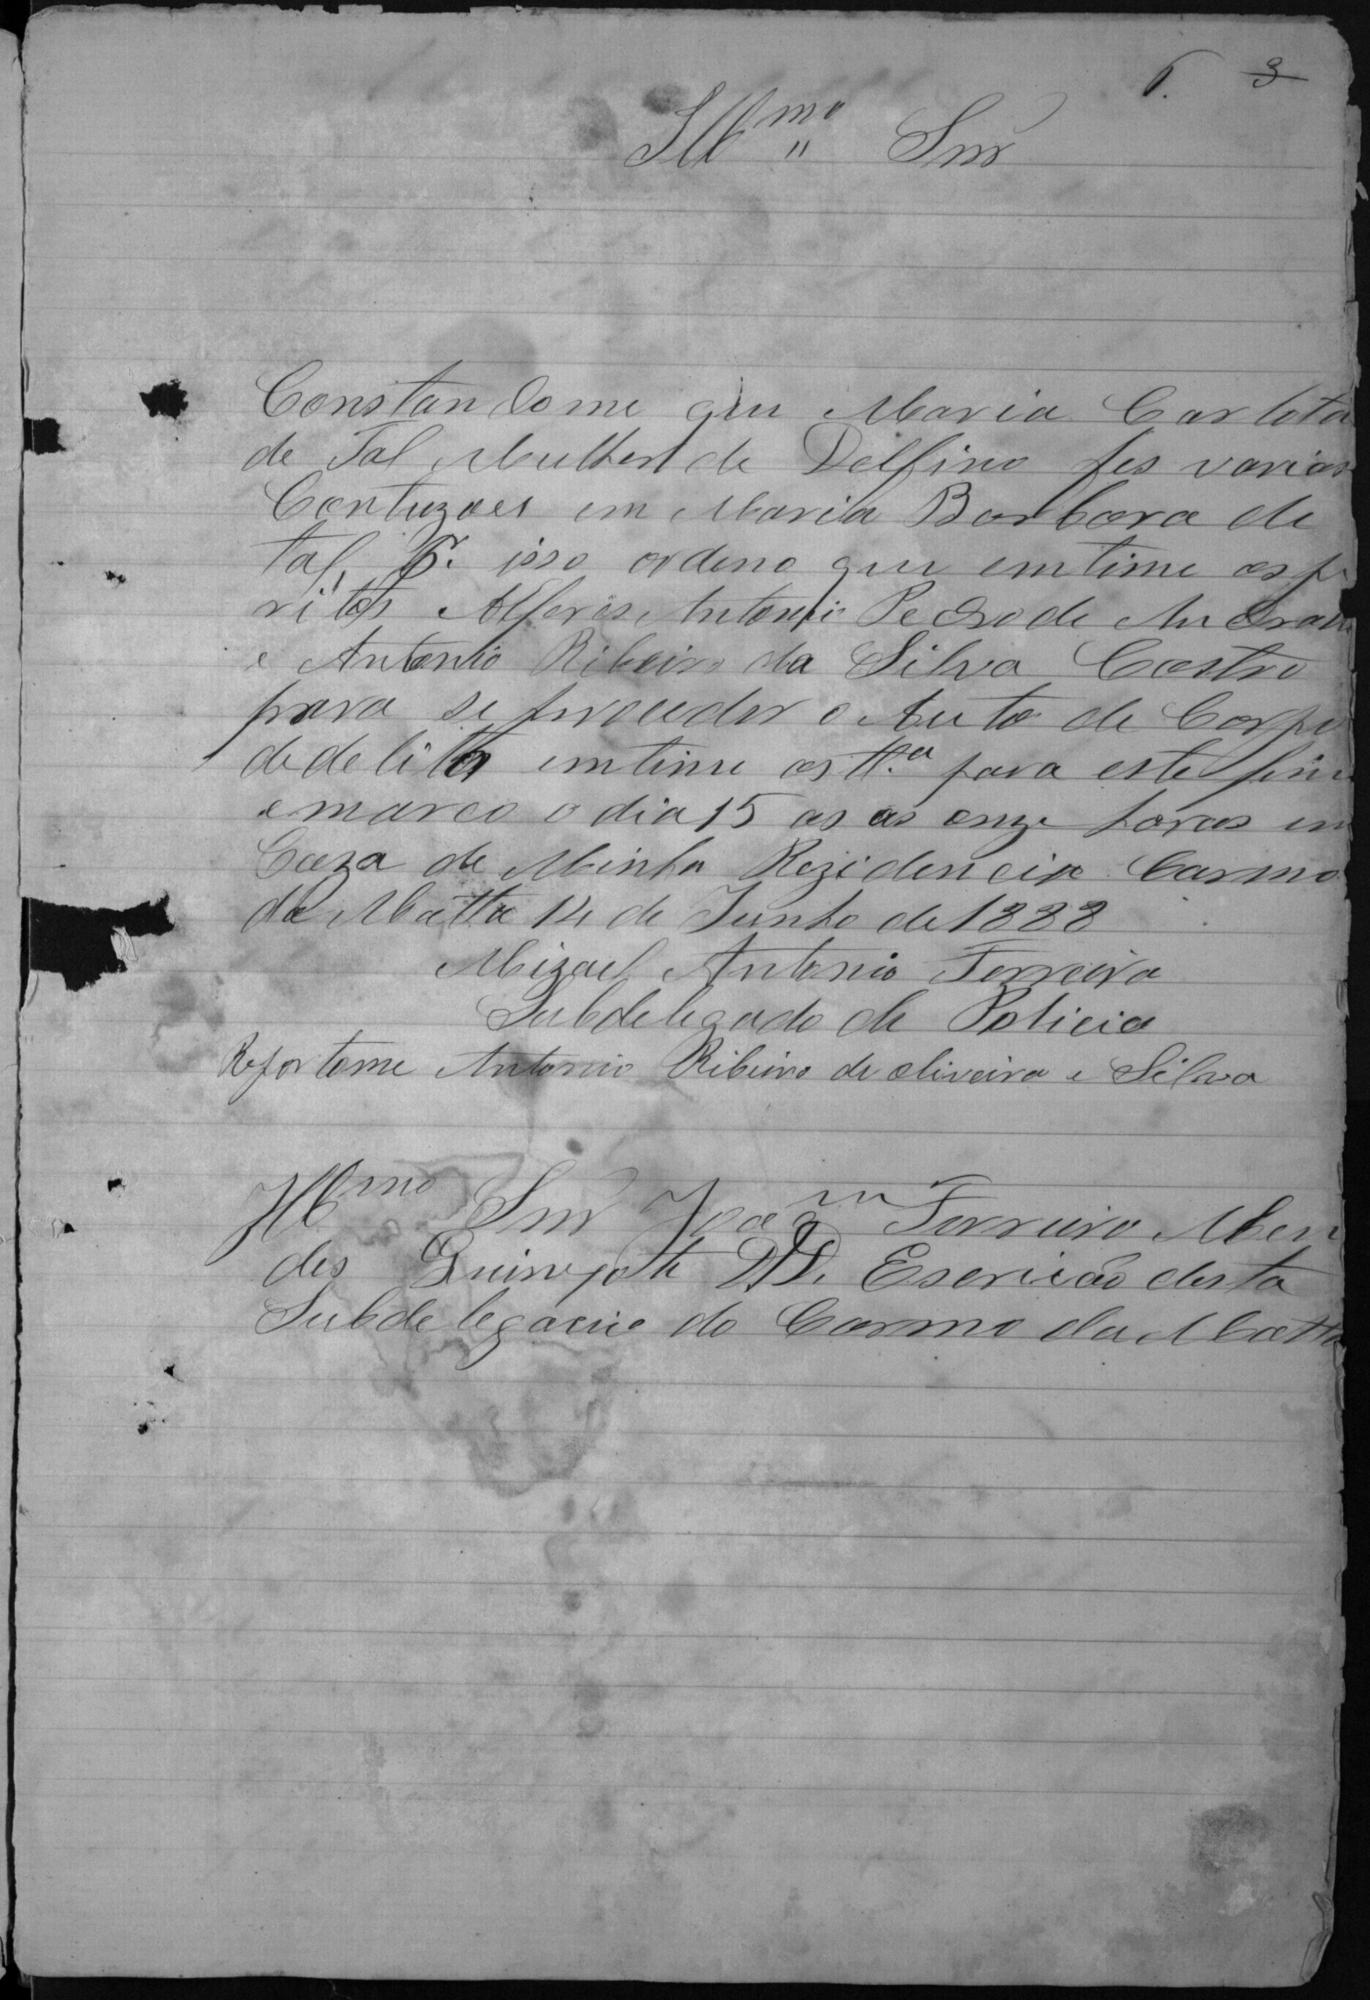 6. 3
Illmo Snr
Constandome que Maria Carlota
de Tal Mulher de Delfino fes varias
Contuzoes em Maria Barbara de
tal, P. isso ordeno que emtime os pe
ritos Alferes Antonio Pedro de Andrade
e Antonio Ribeiro da Silva Castro
para se proceder o Auto de Corpo
de delito emtime as tt.a para este fim
e marco o dia 15 as as onze horas em
Caza de Minha Rezidencia Carmo
da Matta 14 de Junho de 1888
Mizael Antonio Ferreira
Subdelegado de Policia
Antonio Ribeiro de Oliveira e Silva
Illmo Snr Joam Ferreira Men
des DD. Escrivão desta
Subdelegacia do Carmo da Matta